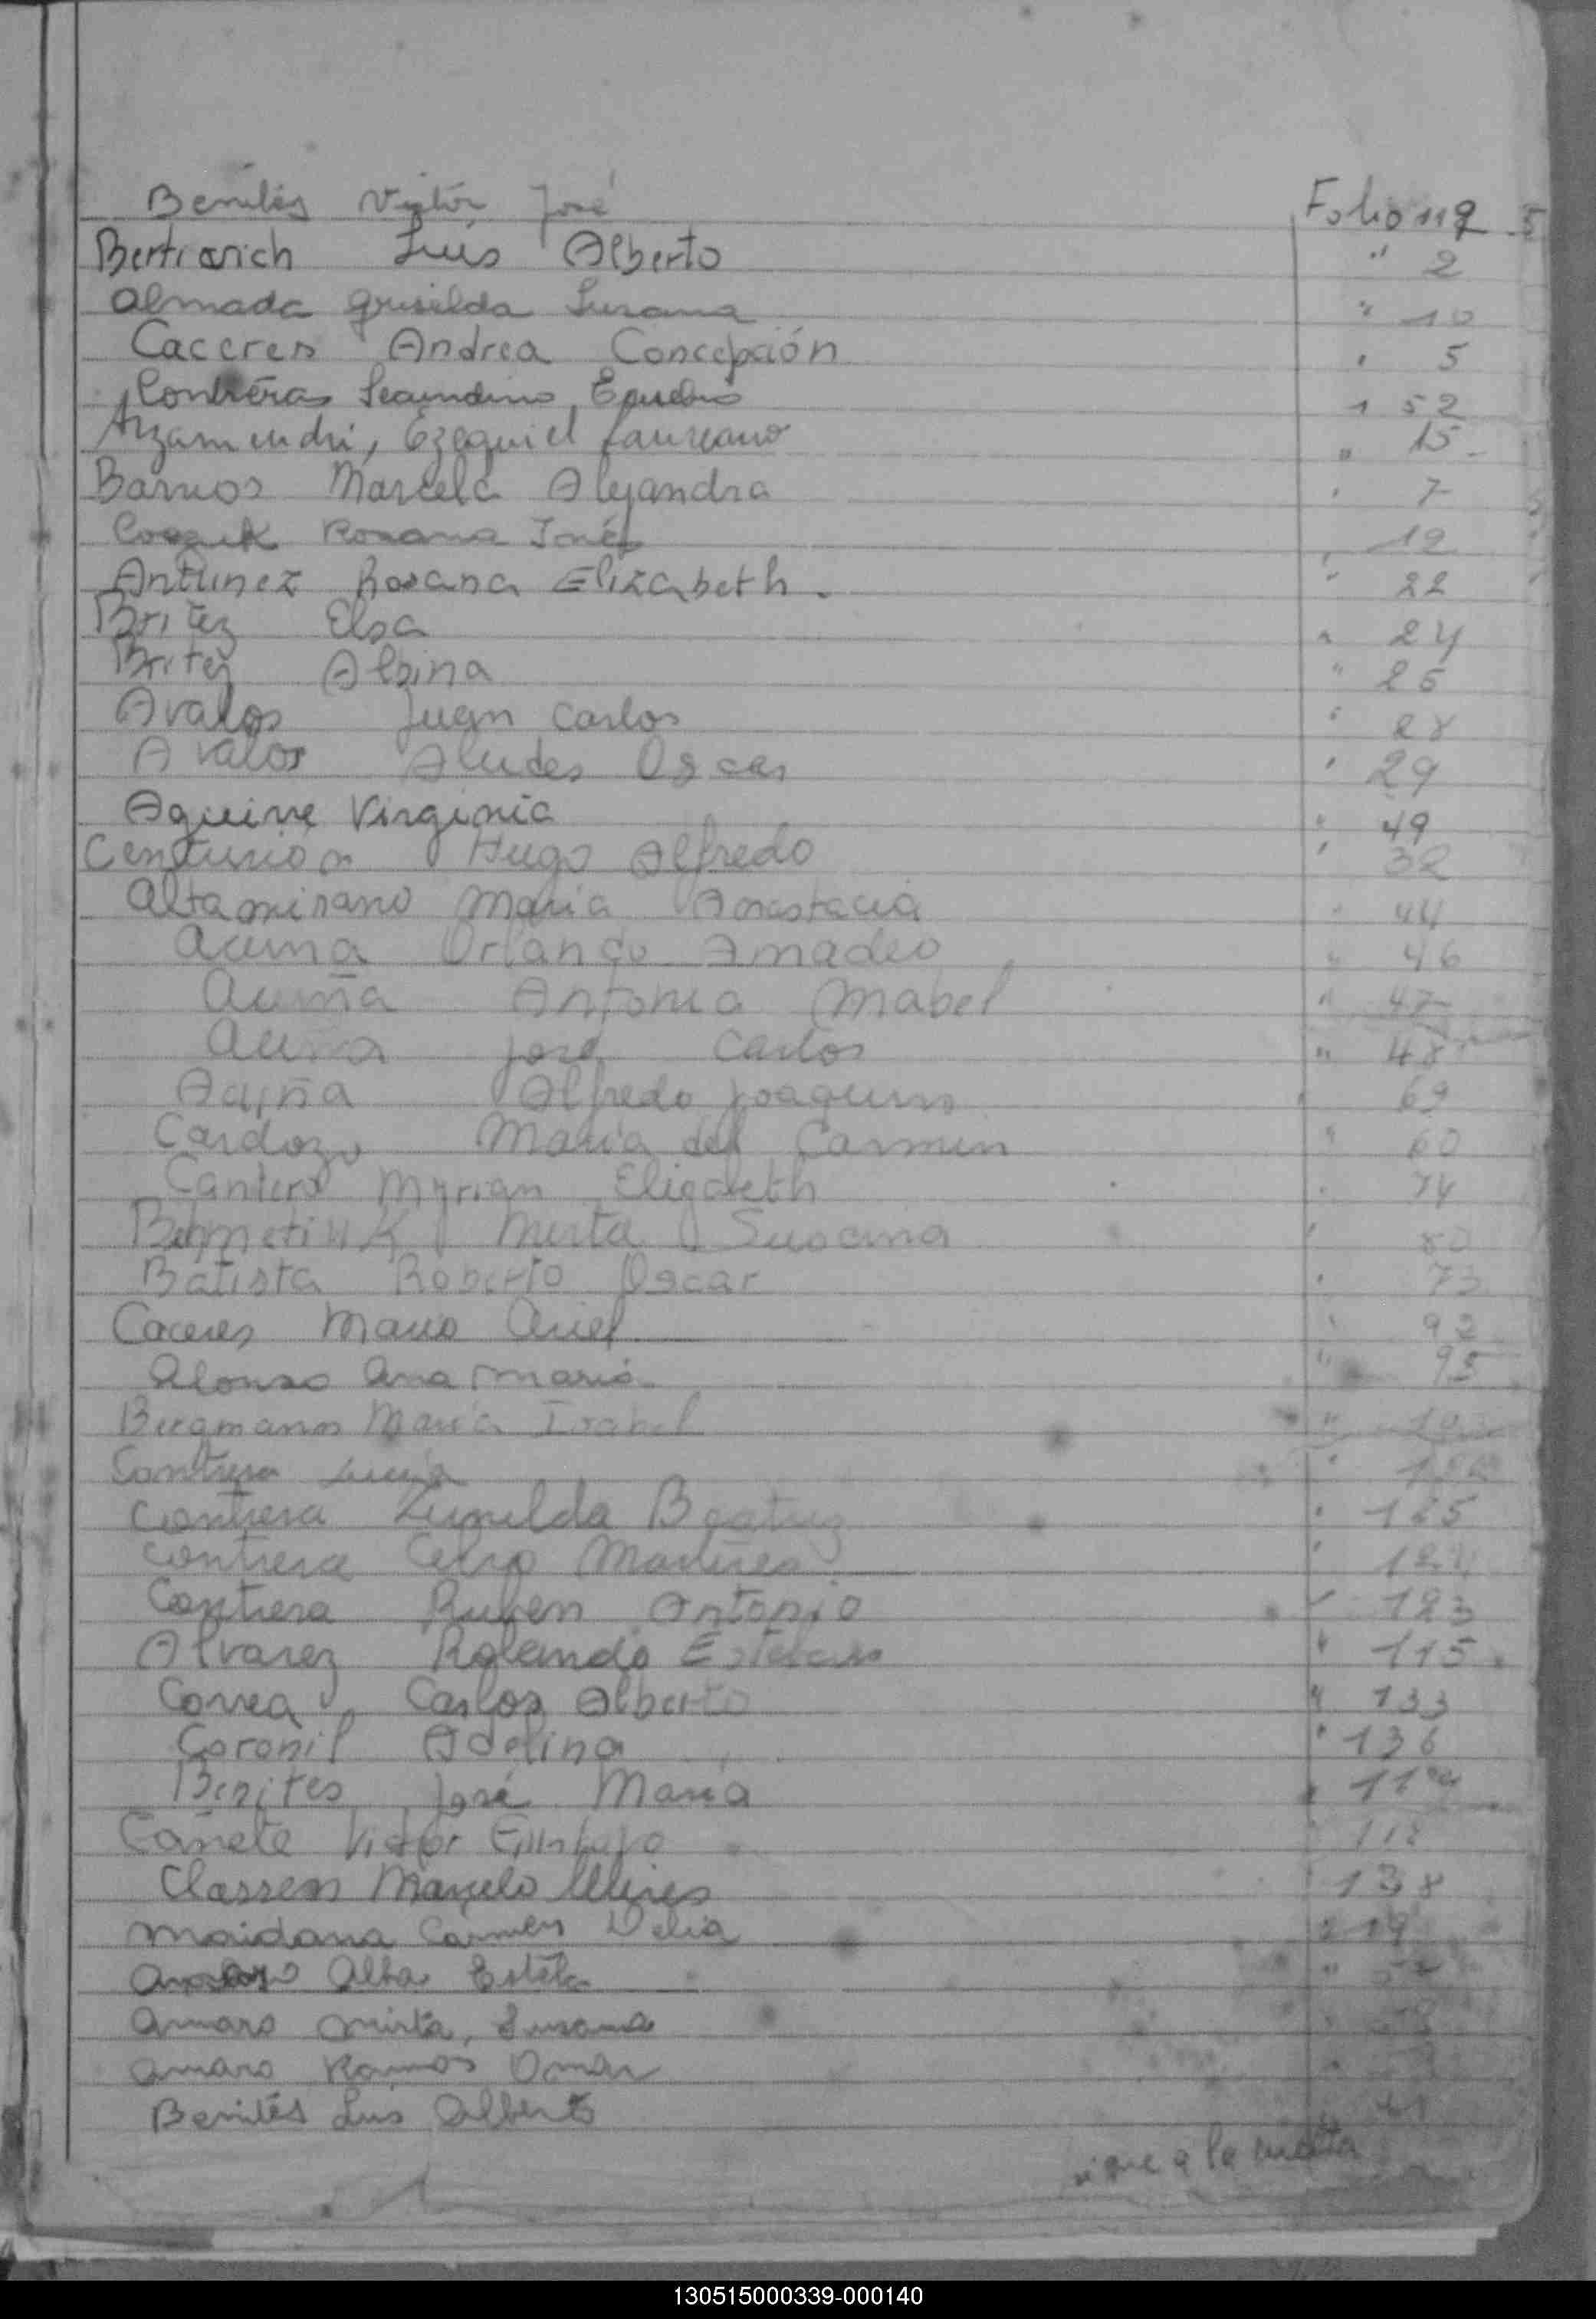 Benites Victor José Folio 112
Bertiarich Luis Alberto " 2
Almada Griselda Susana " 10
Caceres Andrea Concepción " 5
Contreras Secundino, Eusebio " 52
Arzamendri, Ezequiel Laureano " 15
Barrios Marcela Alejandra " 7
Roxana Inés " 19
Antunez Roxana Elizabeth. " 22
Britez Elsa " 24
Britez Albina " 25
Avalos Juan Carlos " 28
Avalos Aludes Oscar " 29
Aguirre Virginia " 49
Centurion Hugo Alfredo " 32
Altamirano Maria Anastacia " 44
Acuña Orlando Amadeo " 46
Acuña Antonia Mabel " 47
Acuña José Carlos " 48
Acuña Alfredo Joaquin 69
Cardozo Maria del Carmen " 60
Cantero Myrian Elizabeth " 74
Mirta Susana " 80
Batista Roberto Oscar " 73
Caceres Mario Ariel " 92
Alonso Ana Maria " 95
Bergmann Maria Isabel "
Contrera Lucia "
Contrera Zunilda Beatriz " 125
Contrera Celso " 124
Contrera Ruben Antonio " 123
Alvarez Rolando Esteban " 115
Correa, Carlos Alberto " 133
Coronil Adelina " 136
Benites José Maria "
Cañete Victor Gustavo 118
Classen Marcelo Ulises " 138
Maidana Carmen Delia 219
Alba Estela
Amaro Mirta, Susana
Amaro Ramos Omar
Benites Luis Alberto 41
sigue a la vuelta
130515000339-000140